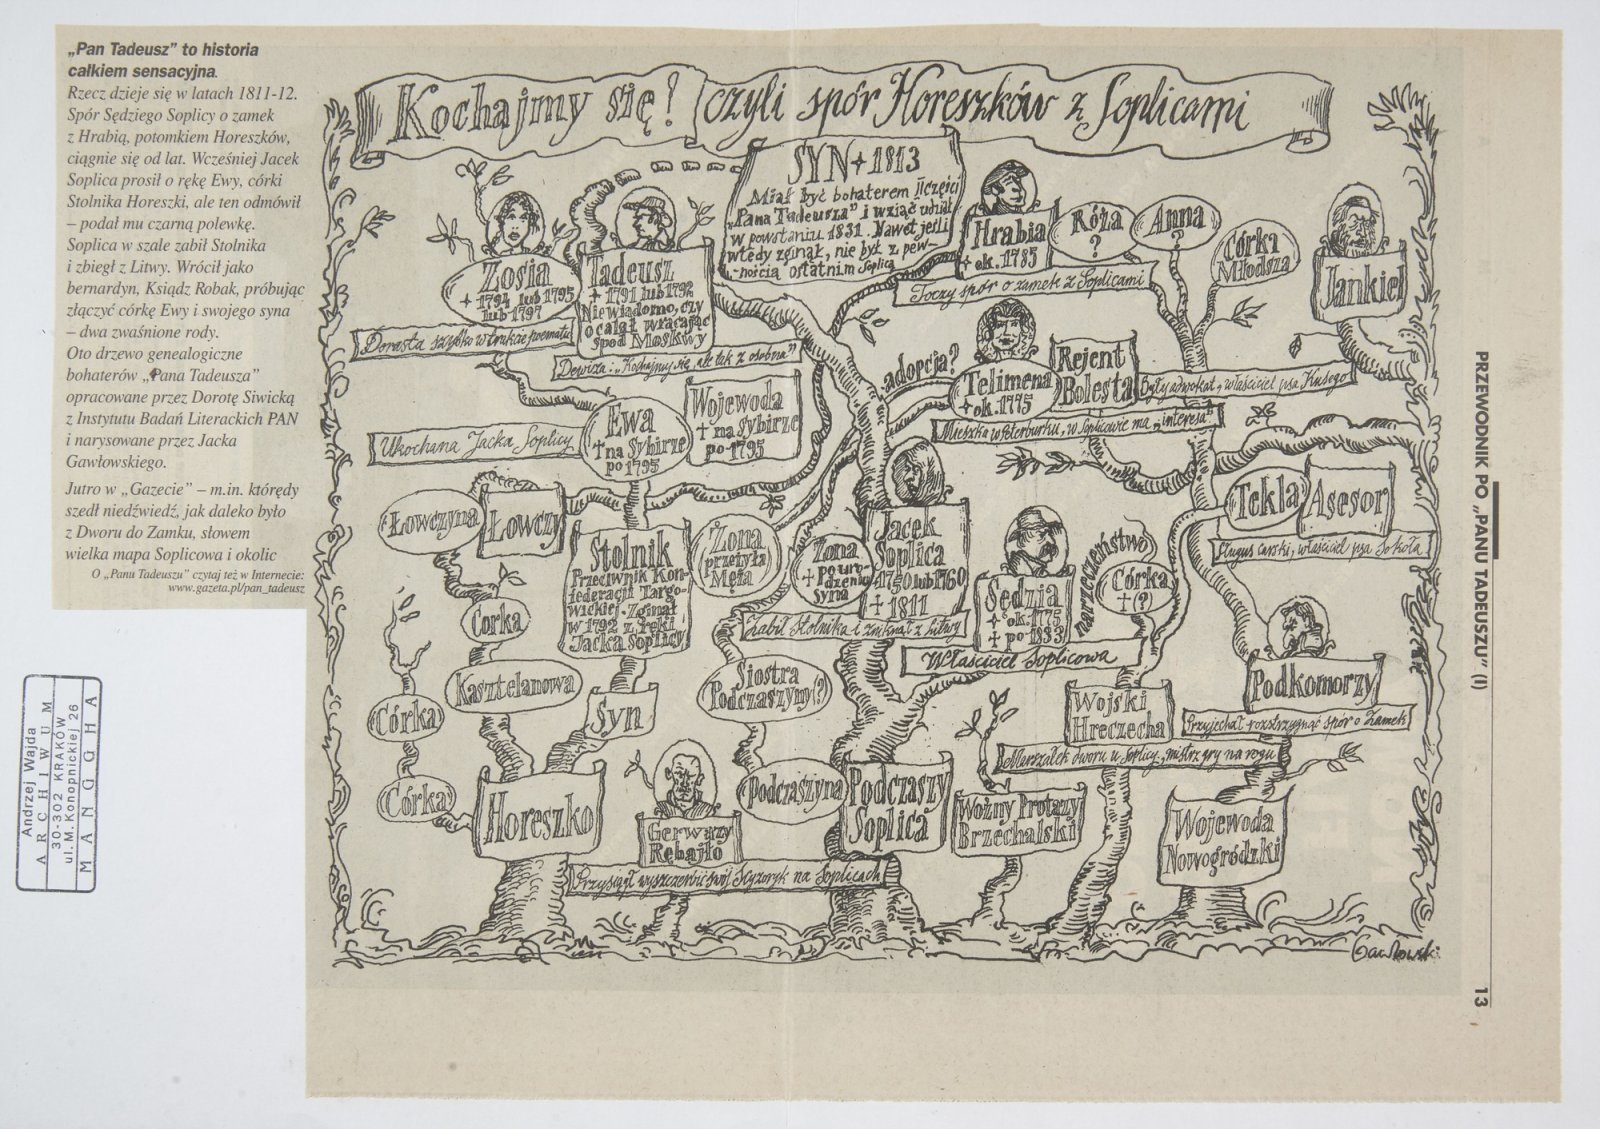 „Pan Tadeusz” to historia
całkiem sensacyjna.
Rzecz dzieje się w latach 1811-12.
Spór Sędziego Soplicy o zamek
z Hrabią, potomkiem Horeszków,
ciągnie się od lat. Wcześniej Jacek
Soplica prosił o rękę Ewy, córki
Stolnika Horeszki, ale ten odmówił
– podał mu czarną polewkę.
Soplica w szale zabił Stolnika
i zbiegł z Litwy. Wrócił jako
bernardyn, Ksiądz Robak, próbując
złączyć córkę Ewy i swojego syna
– dwa zwaśnione rody.
Oto drzewo genealogiczne
bohaterów „Pana Tadeusza”
opracowane przez Dorotę Siwicką
z Instytutu Badań Literackich PAN
i narysowane przez Jacka
Gawłowskiego.
Jutro w „Gazecie” – m.in. którędy
szedł niedźwiedź, jak daleko było
z Dworu do Zamku, słowem
wielka mapa Soplicowa i okolic
O „Panu Tadeuszu” czytaj też w Internecie:
www.gazeta.pl/pan_tadeusz
Kochajmy się! czyli spór Horeszków z Soplicami
SYN + 1813
Miał być bohaterem II części
„Pana Tadeusza” i wziąć udział
w powstaniu 1831. Nawet jeśli
wtedy zginął, nie był z pew-
nością ostatnim Soplicą
Zosia
+ 1794 lub 1795
lub 1797
Dorasta szybko w trakcie poematu
Tadeusz
+ 1791 lub 1792
Nie wiadomo, czy
ocalał wracając
spod Moskwy
Dewiza: „Kochajmy się, ale tak z osobna”
Hrabia
+ ok. 1785
Toczy spór o zamek z Soplicami
Róża
?
Anna
?
Córka
Młodsza
Jankiel
adopcja?
Telimena
+ ok. 1775
Mieszka w Peterburku, w Soplicowie ma „interesa”
Rejent
Bolesta
Były adwokat, właściciel psa Kusego
Ewa
† na Sybirze
po 1795
Ukochana Jacka Soplicy
Wojewoda
† na Sybirze
po 1795
Łowczyna
Łowczy
Stolnik
Przeciwnik Kon-
federacji Targo-
wickiej. Zginął
w 1792 z ręki
Jacka Soplicy
Żona
przeżyła
Męża
Żona
† po uro-
dzeniu
syna
Jacek
Soplica
+ 1750 lub 1760
† 1811
Zabił Stolnika i zniknął z Litwy
Sędzia
+ ok. 1775
† po 1833
Właściciel Soplicowa
narzeczeństwo
Córka
† (?)
Tekla
Asesor
Sługus carski, właściciel psa Sokoła
Córka
Kasztelanowa
Syn
Córka
Córka
Siostra
Podczaszyny(?)
Wojski
Hreczecha
Marszałek dworu u Soplicy, mistrz gry na rogu
Podkomorzy
Przyjechał rozstrzygnąć spór o Zamek
Horeszko
Gerwazy
Rębajło
Przysiągł wyszczerbić swój Scyzoryk na Soplicach
Podczaszyna
Podczaszy
Soplica
Woźny Protazy
Brzechalski
Wojewoda
Nowogródzki
Gawłowski
PRZEWODNIK PO „PANU TADEUSZU” (I)
13
Andrzej Wajda
ARCHIWUM
30-302 KRAKÓW
ul. M. Konopnickiej 26
MANGGHA